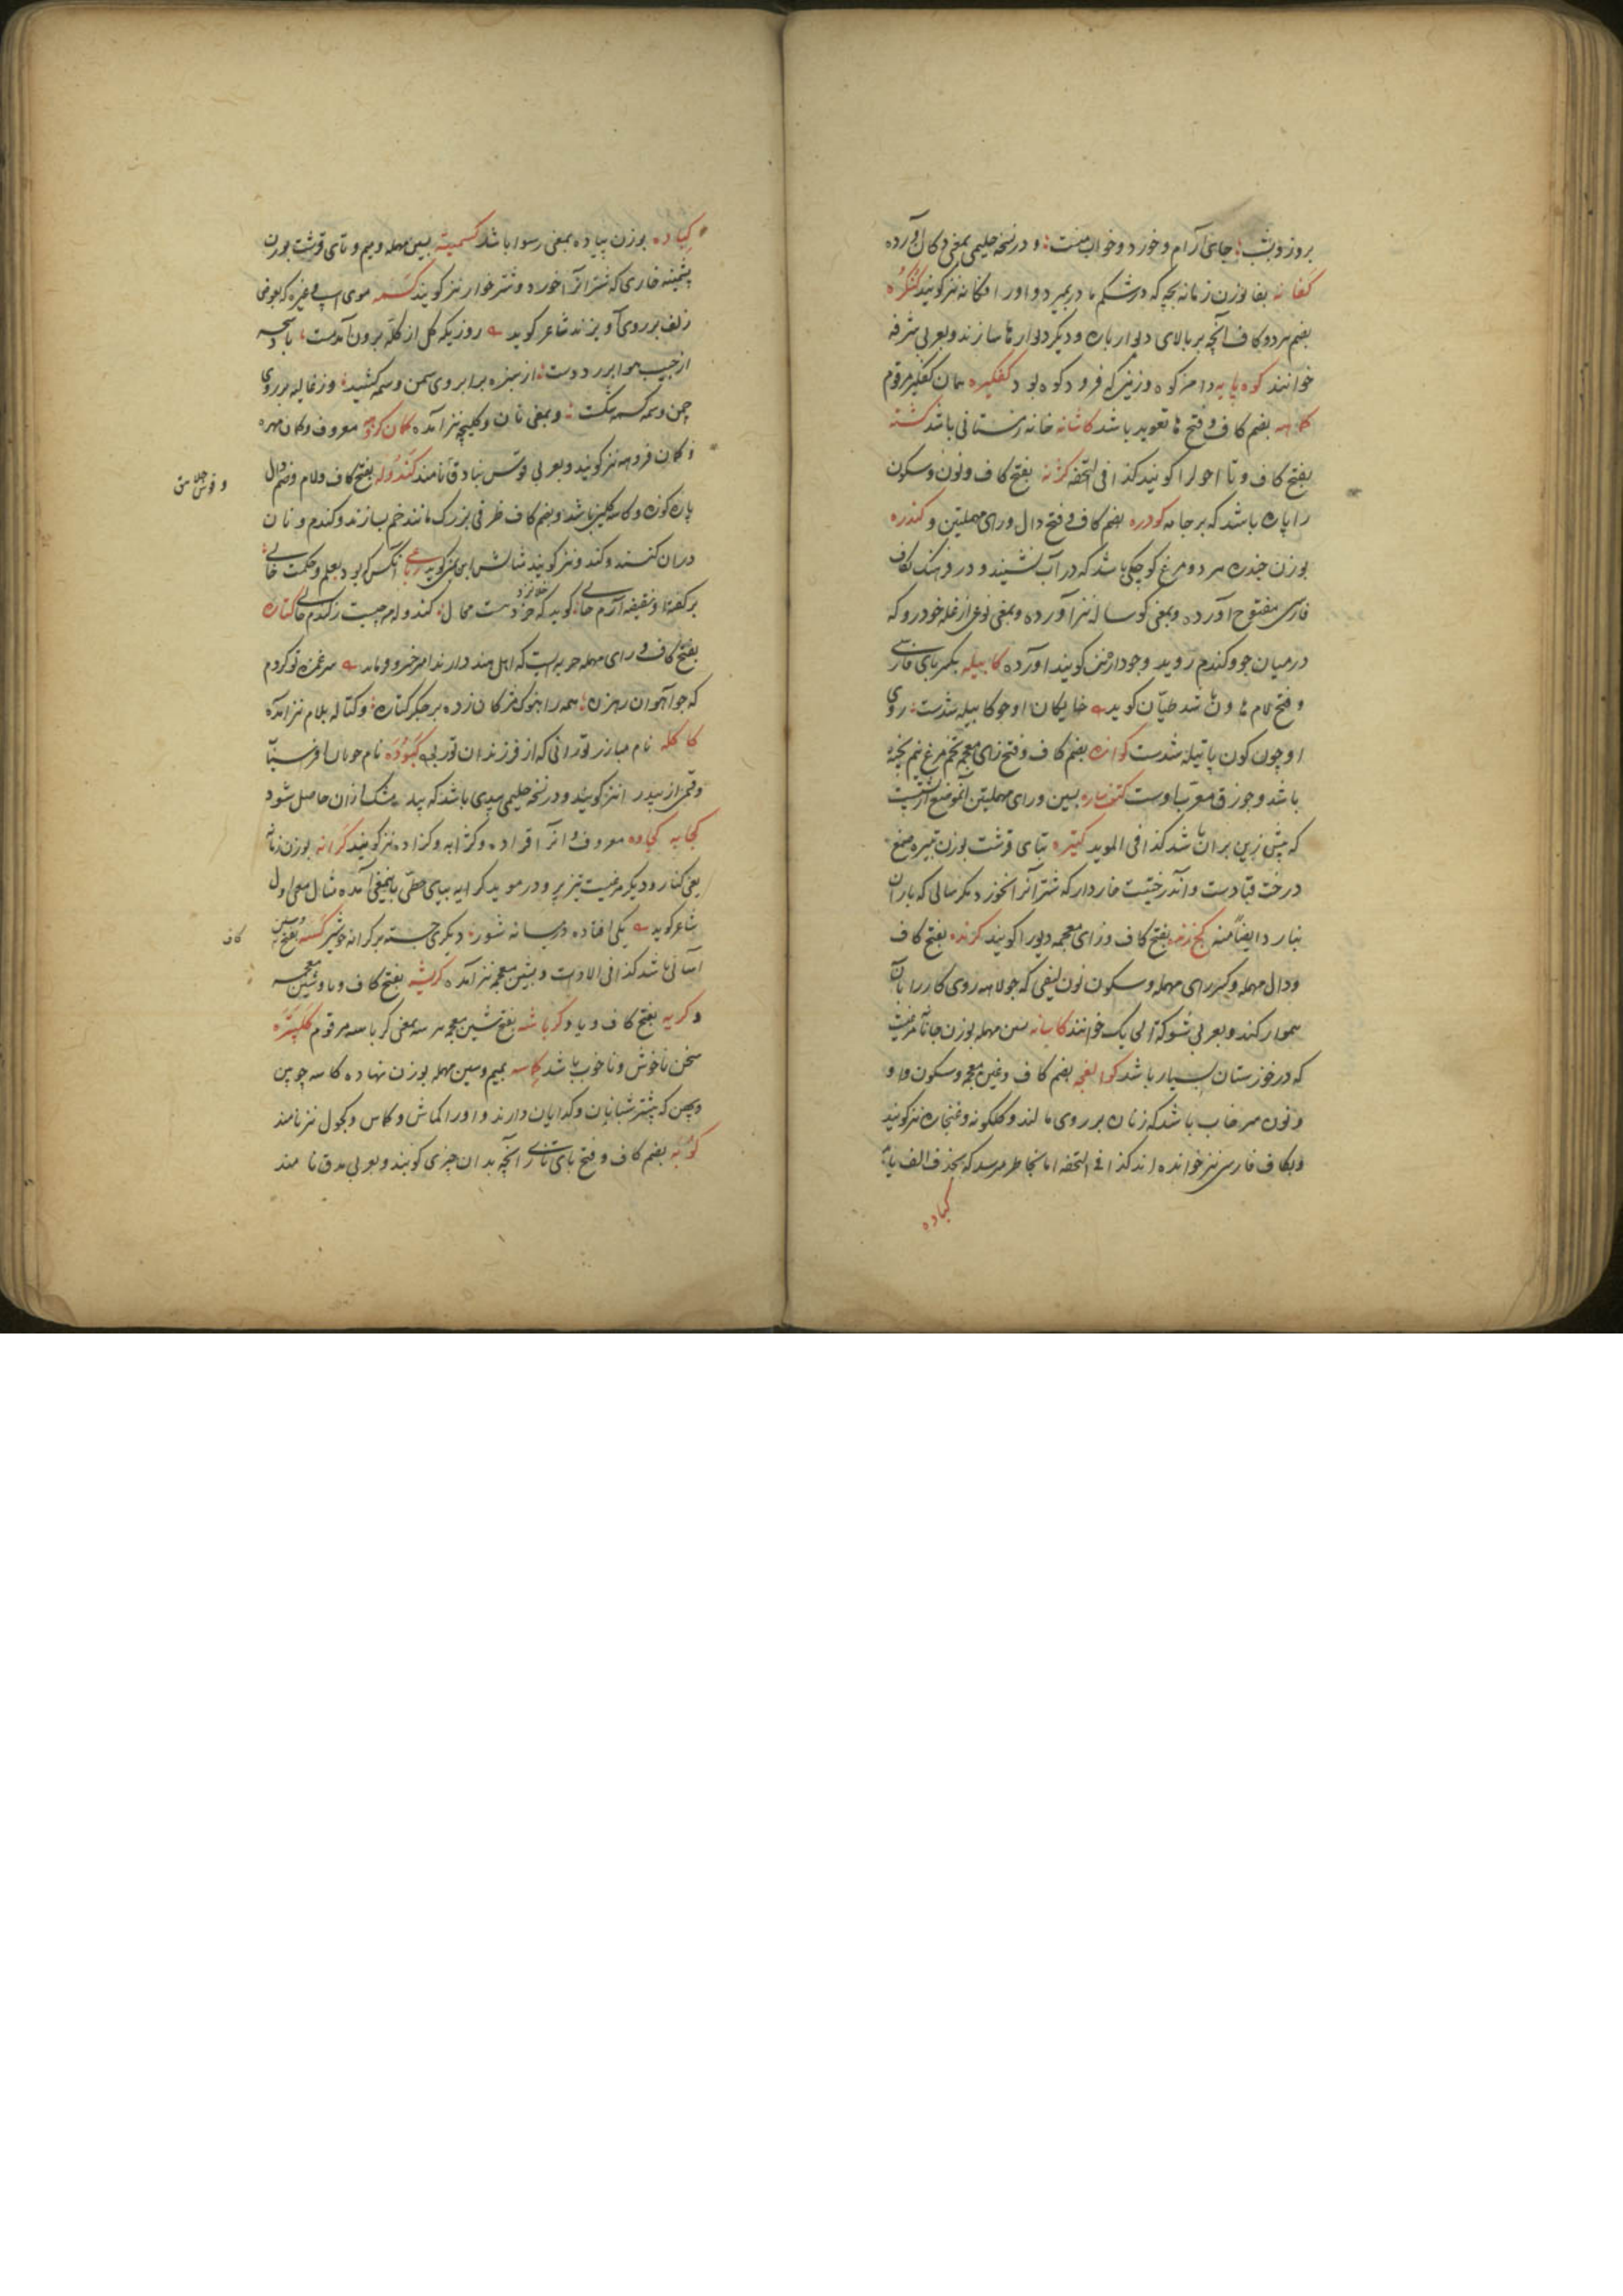 بروز و شب جای آرام و خورد و خواب منست و در نسخه حلیمی بمعنی دکان آورده
کفانه بفا بوزن زمانه بچه که در شکم مادر بمیرد و او را افکانه نیز گویند کنگره
بضم هر دو کاف آنچه بر بالای دیوار باره و دیگر دیوارها سازند و بعربی شرفه
خوانند کوه پایه دامن کوه و زمینی که فرود کوه بود کفگیره همان کفگیر مرقوم
بضم کاف و فتح ها تعوید باشد کاشانه خانه زمستانی باشد کشته
بفتح کاف و تا احول را گویند کذا فی التحفه کژنه بفتح کاف و نون و سکون
را پاره باشد که بر جامه کودره بضم کاف و فتح دال و رای مهملتین و کندره
بوزن جندره هر دو مرغ کوچکی باشد که در آب نشیند و در فرهنگ بکاف
فارسی مفتوح آورده و بمعنی گوساله نیز آورده و بمعنی نوعی از غله خودرو که
در میان جو و گندم روید و جودارهٔ نیز گویند آورده کابیله بکسر بای فارسی
و فتح لام هاون باشد طیان گوید خایگان او چو کابیله شدست روی
او چون کون پاتیله شدست کوازه بضم کاف و فتح زای معجم تخم مرغ نیم پخته
باشد و جوزق معرب اوست کتف ساره بسین و رای مهملتین آن موضع از پشت
که پیش زین بر آن باشد کذا فی الموید کتیره بتای قرشت بوزن تبیره صمغ
درخت قتادست و آن درختیست خاردار که شتر آنرا نخورد مگر سالی که باران
نبارد ایضا منه بفتح کاف و زای معجمه دیو را گویند کرنده بفتح کاف
و دال مهمله و کسر رای مهمله و سکون نون لیفی که جولاهه روی کار را بآن
هموار کند و بعربی شوکة الحایک خوانند کاسانه بسین مهمله بوزن جانانه مرغیست
که در خوزستان بسیار باشد کوالغچه بضم کاف و غین معجمه و سکون واو
و نون سرخاب باشد که زنان بر روی مالند و گلگونه و غنجاره نیز گویند
و بکاف فارسی نیز خوانده اند کذا فی التحفه اما بخاطر میرسد که بحذف الف باشد
کیاده
کیاده بوزن پیاده بمعنی رسوا باشد کسمیته بسین مهمله و میم و تای قرشت بوزن
پشمینه خاری که شتر آنرا خورد و شترخوار نیز گویند کسمه موی اسب و غیره که بعوض
زلف بر روی آویزند شاعر گوید روزیکه گل از کله برون آمدست
از جیب هوا بر در دوست از سبزه بر ابروی سمن وسمه کشید وز غالیه بر روی
چمن کسمه شکست و بمعنی نان و کلیچه نیز آمده کمان گروهه معروف و کمان مهره
و کمان گروهه نیز گویند و بعربی قوس بنادق نامند کندوله بفتح کاف و لام و ضم دال
و قوس جلاهق
پاره کوزه و کاسه گلین باشد و بضم کاف ظرفی بزرگ مانند خم سازند و گندم و نان
در آن کنند و کندو نیز گویند مثالش ابن یمین گوید رباعی آنکس که بود بعلم و حکمت خالی
بر گفته او نقیضه آرم حالی گوید که خلا نزد خرد هست محال کندوله چیست ز گندم خالی کتاره
بفتح کاف و رای مهمله حربه ایست که اهل هند دارند امیر خسرو فرماید سر غمزه تو کردم
که جو آهوان رمزن همه را به نوک مژگان زده بر جگر کتاره و کتاله بلام نیز آمده
کاکله نام مبارز تورانی که از فرزندان تور بود کبوده نام چوپان افراسیاب
و قمی از بید را نیز گویند و در نسخه حلیمی بیدی باشد که بید مشک از آن حاصل شود
کجابه کجاوه معروف و آنرا قراده و کژابه و کزاده نیز گویند کرانه بوزن زمانه
یعنی کنار و دیگر مرغیست تیزپر و در موید کرایه ببای حطی باینمعنی آمده مثال معنی اول
شاعر گوید یکی افتاده در میانه شور دیگری جسته بر کرانه خویش کسه بفتح
کاف
آسانی باشد کذا فی الادات و بشین معجمه نیز آمده کریشه بفتح کاف و یا و شین معجمه
و کربه بفتح کاف و یا و کرباشه بفتح شین معجمه هر سه بمعنی کرباسه مرقوم کلپتره
سخن ناخوش و ناخوب باشد کماسه بمیم و سین مهمله بوزن نهاده کاسه چوبین
و پهن که بیشتر شبانان و گدایان دارند و او را کماش و کماس و کجول نیز نامند
کوبه بضم کاف و فتح بای تازی آنچه بدان چیزی کوبند و بعربی مدق نامند